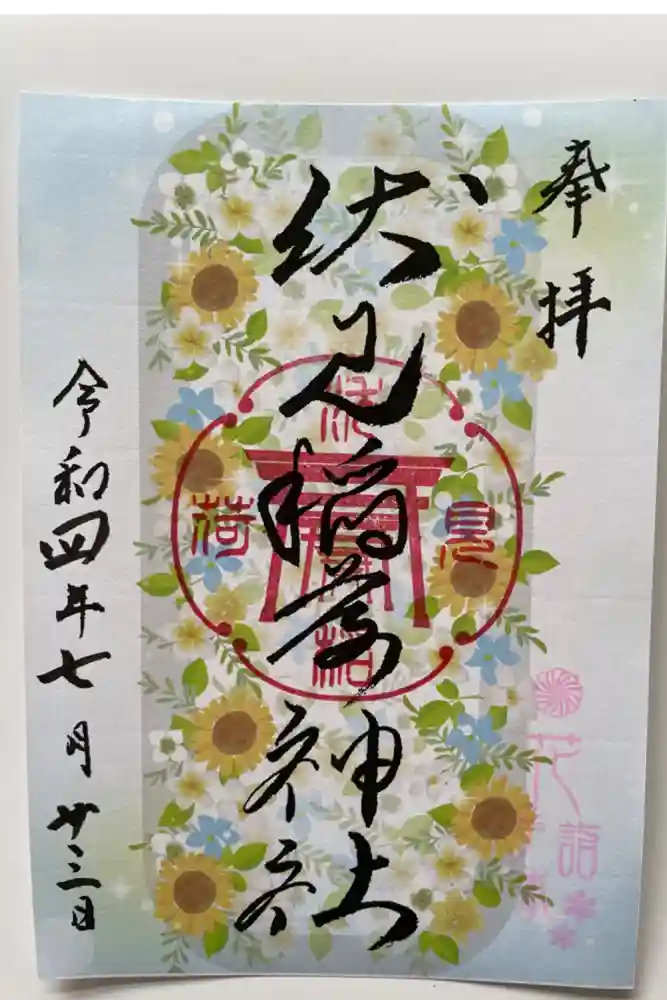 奉拝
伏見稲荷神社
伏
見
稲
荷
令和四年七月廿三日
花詣